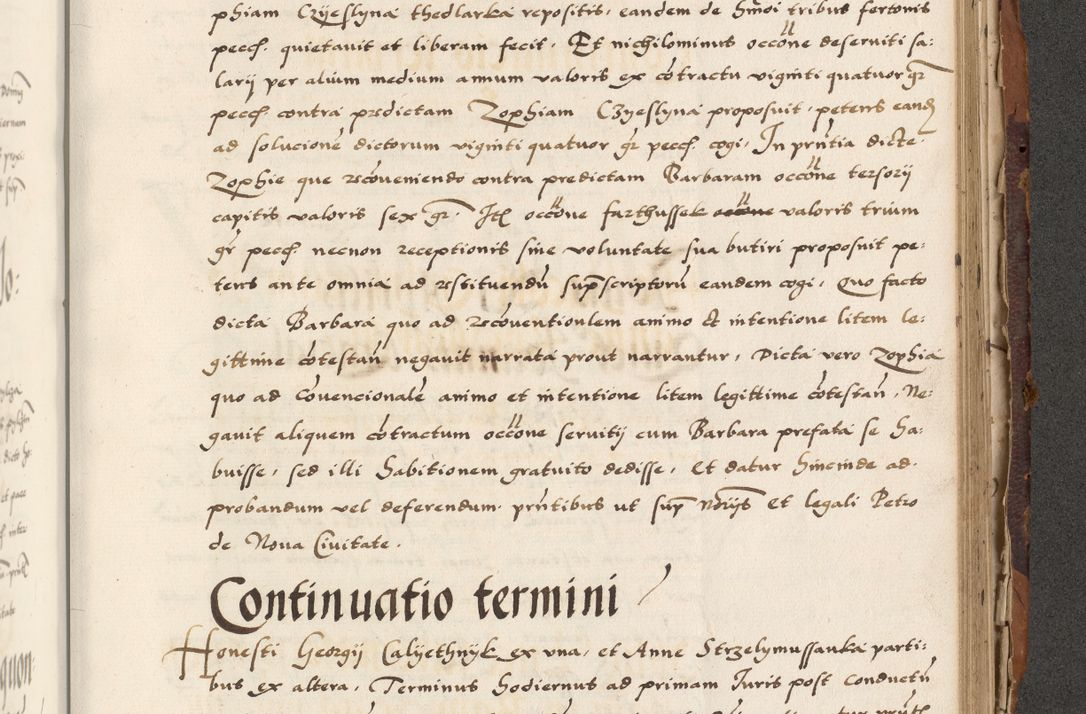 phiam Czÿeslyna thedlarka repositis, eandem de hmoi tribus fertonis
pecc. quietavit et liberam fecit. Et nichilominus occone deserviti sa:
larij per alium medium annum valoris ex cotractu viginti quatuor gr
pecc. contra predictam Zophiam Czyeslyna proposuit, petens eand
ad solucione dictorum viginti quatuor gr pecc. cogi, In pritia dicte
Zophie que recoveniendo contra predictam Barbaram occone tersorij
capitis valoris sex gr. Ite occone farthussek valoris trium
gr pecc. necnon receptionis sine voluntate sua butiri proposuit pe:
tens ante omnia ad restituendu supscriptoru eandem cogi, Quo facto
dicta Barbara quo ad recoventionlem animo et intentione litem le:
gittime cotestan negavit narrata prout narrantur, Dicta vero Zophia
quo ad Covencionale animo et intentione litem legittime cotestan, Ne:
gavit aliquem cotractum occone servitij cum Barbara prefata se ha:
buisse, sed illi habitionem gratuito dedisse, Et datur hincinde ad
probandum vel deferendum. pritibus ut sup Norijs Et legali Petro
de Nova Civitate.
Continuatio termini
Honesti Georgij Calÿethnÿk ex una, et Anne Strzelymussauka parti:
bus ex altera, Terminus hodiernus ad primam Juris post conductu